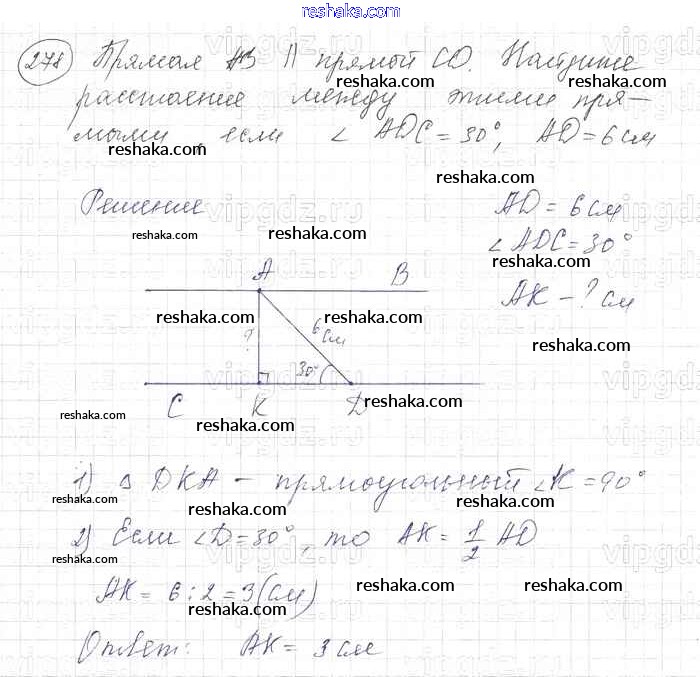 reshaka.com
278 Прямая AB || прямой CD. Найдите
reshaka.com reshaka.com
расстояние между этими пря-
мыми если ∠ADC = 30°, AD = 6 см
reshaka.com
reshaka.com
Решение AD = 6 см
reshaka.com reshaka.com
∠ADC = 30°
reshaka.com
A B
AK - ? см
reshaka.com reshaka.com
? 6 см
reshaka.com
30°
reshaka.com reshaka.com
C K D
reshaka.com
reshaka.com
1) △ DKA - прямоугольный ∠K = 90°
reshaka.com reshaka.com
2) Если ∠D = 30°, то AK = 1/2 AD
reshaka.com reshaka.com
AK = 6 : 2 = 3 (см)
reshaka.com reshaka.com
reshaka.com
Ответ: AK = 3 см
reshaka.com reshaka.com